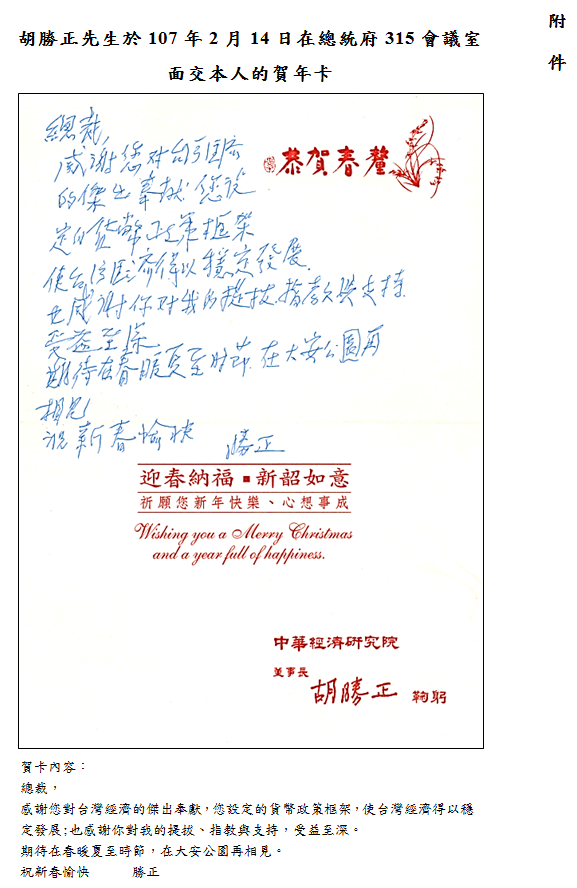 附件
胡勝正先生於 107 年 2 月 14 日在總統府 315 會議室
面交本人的賀年卡
恭賀春釐
總裁,
感謝您對台灣經濟
的傑出奉獻, 您設
定的貨幣政策框架
使台灣經濟得以穩定發展.
也感謝你對我的提拔、指教與支持.
受益至深
期待在春暖夏至時節. 在大安公園再
相見
祝新春愉快 勝正
迎春納福▪新韶如意
祈願您新年快樂、心想事成
Wishing you a Merry Christmas
and a year full of happiness.
中華經濟研究院
董事長
胡勝正 鞠躬
賀卡內容：
總裁，
感謝您對台灣經濟的傑出奉獻，您設定的貨幣政策框架，使台灣經濟得以穩
定發展;也感謝你對我的提拔、指教與支持，受益至深。
期待在春暖夏至時節，在大安公園再相見。
祝新春愉快 勝正